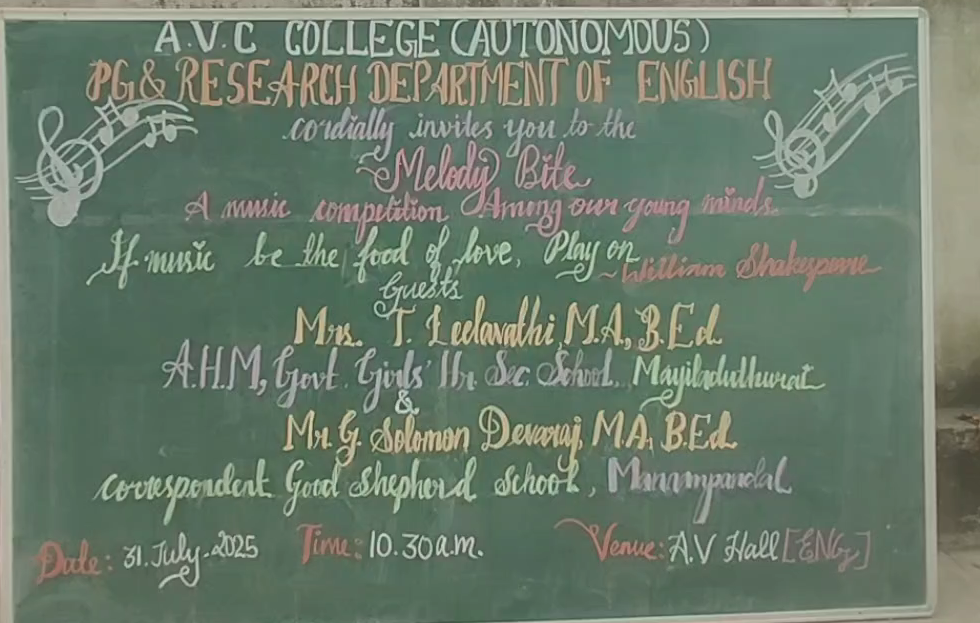 A.V.C COLLEGE (AUTONOMOUS)
PG & RESEARCH DEPARTMENT OF ENGLISH
cordially invites you to the
~Melody Bite
A music competition Among our young minds.
If music be the food of love, Play on
~William Shakespeare
Guests
Mrs. T. Leelavathi, M.A., B.Ed.
A.H.M, Govt. Girls' Hr. Sec. School, Mayiladuthurai
&
Mr. G. Solomon Devaraj, M.A., B.Ed.
correspondent Good Shepherd School, Mannampandal
Date: 31.July.2025 Time: 10.30a.m. Venue: A.V Hall [ENG]